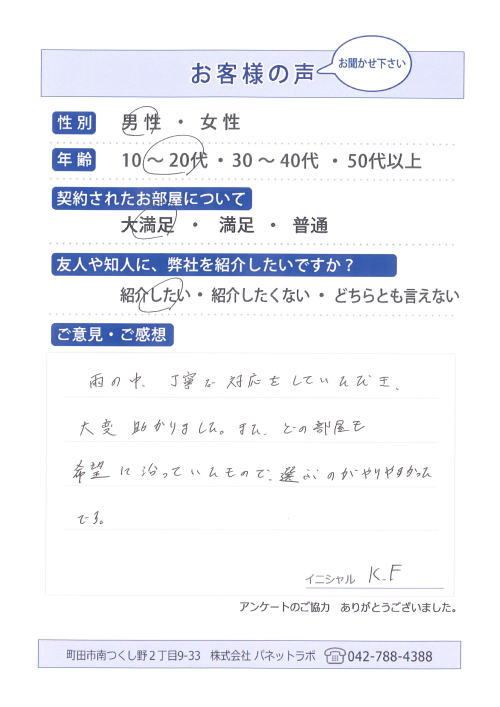 お客様の声
お聞かせ下さい
性別 男性 ・ 女性
年齢 10 〜 20代 ・ 30 〜 40代 ・ 50代以上
契約されたお部屋について
大満足 ・ 満足 ・ 普通
友人や知人に、弊社を紹介したいですか？
紹介したい ・ 紹介したくない ・ どちらとも言えない
ご意見・ご感想
雨の中、丁寧な対応をしていただき、
大変助かりました。また、どの部屋も
希望に沿っていたもので、選ぶのがやりやすかった
です。
イニシャル K.F
アンケートのご協力 ありがとうございました。
町田市南つくし野２丁目9-33 株式会社 パネットラボ 042-788-4388